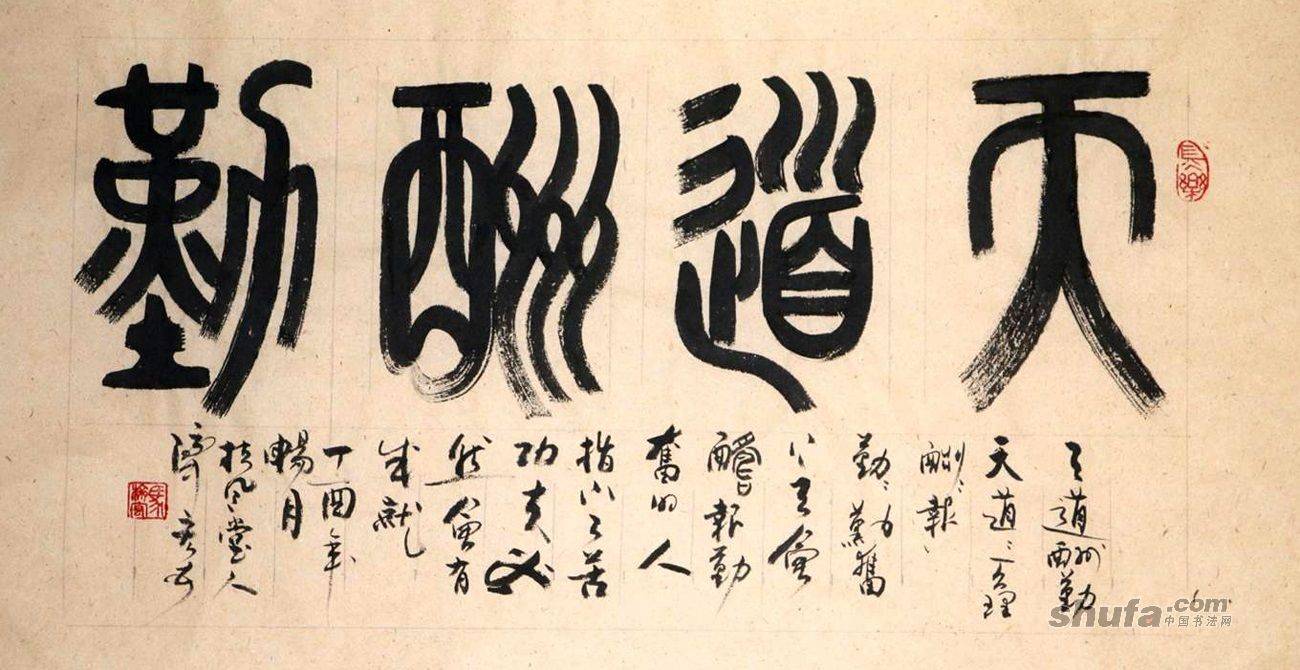 天道酬勤
天道酬勤
天道
酬報
勤奮
上天會
酬報勤
奮的人
指下了苦
功夫必
然會有
成就
丁酉年
暢月
風堂人
長樂
shufa.com
中国书法网